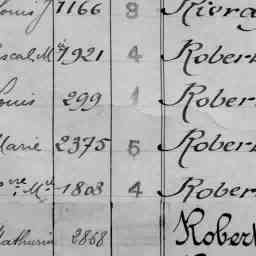 Louis J 7166 8 Kierag
Pascal Mie 1921 4 Robert
Louis 299 1 Robert
Marie 2375 5 Robert
Mie 1803 4 Robert
Mathurin 2868 Robert